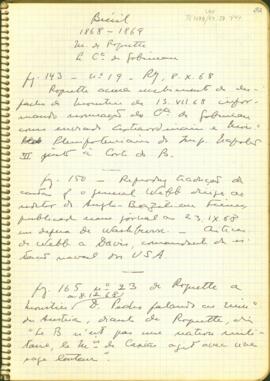 Brésil
1868 - 1869
M. de Roquette
L. Cte de Gobineau
fg. 143 - nº 19 - Rj, 8.X.68
Roquette acusa recebimento de des-
pacho de Moustier de 15.VII.68 infor-
mando nomeação do Cte de Gobineau
como enviado extraordinaire e Mi-
Plenipotenciario do Imp. Napoleão
III junto à Corte do B.
fg. 150 - Reprodução de
carta q o general Webb dirige ao
editor do Anglo-Brazilian Times,
publicada nesse jornal a 23.IX.68
em defesa de Washburn. - Outra
de Webb a Davis, comandante de es-
naval dos USA
fg. 165 nº 23 de Roquette a
8.12.68
Moustier / D. Pedro falando ao min
de Austria, diante de Roquette, diz
"Le B n'est pas une nation mili-
taire, le Mis de Caxias agit avec une
sage lenteur".